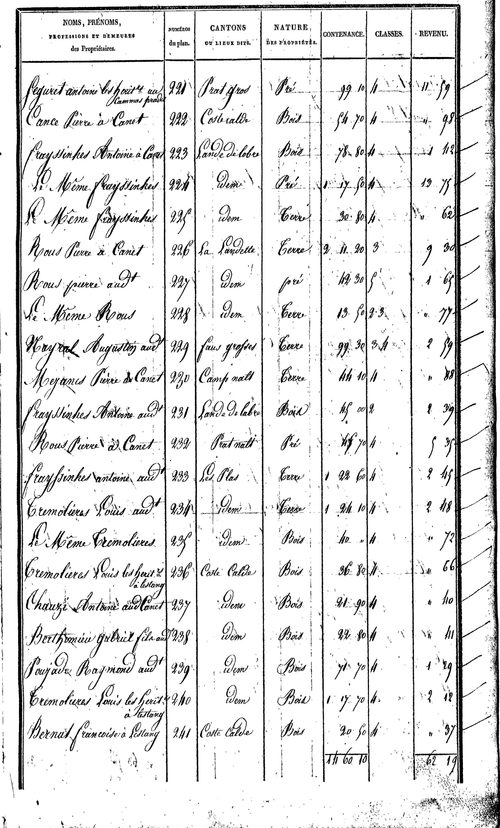 NOMS, PRÉNOMS, PROFESSIONS ET DEMEURES des Propriétaires. NUMÉROS du plan. CANTONS OU LIEUX DITS. NATURE DES PROPRIÉTÉS. CONTENANCE. CLASSES. REVENU.
Seguret antoine les herit.rs au 221 Prat gros Pré 99 10 4 11 59
Cance Pierre à Canet 222 Coste calde Bois 54 70 4 " 98
frayssinhes Antoine à Canet 223 Lande de labre Bois 78 80 4 1 42
Le Même frayssinhes 224 idem Pré 1 17 50 4 13 75
Le Même frayssinhes 225 idem Terre 30 80 4 " 62
Rous Pierre à Canet 226 La Landelle Terre 2 11 20 3 9 30
Rous pierre aud.t 227 idem pré 42 30 5 1 65
Le Même Rous 228 idem Terre 13 50 2 3 " 77
Nayral Augustin aud.t 229 faus grosses Terre 99 30 3 4 2 59
Mejanes Pierre de Canet 230 Camp nalt Terre 44 10 4 " 88
frayssinhes Antoine aud.t 231 Lande de labre Bois 45 00 2 2 39
Rous Pierre à Canet 232 Prat nalt Pré 45 70 4 5 35
frayssinhes antoine aud.t 233 Les Plas Terre 1 22 60 4 2 45
Tremolieres Louis aud.t 234 idem Terre 1 24 10 4 2 48
Le Même Tremolieres 235 idem Bois 40 " 4 " 72
Tremolieres Louis les herit.rs à Lestang 236 Coste Calde Bois 36 80 4 " 66
Chauzi Antoine aud Canet 237 idem Bois 21 90 4 " 40
Berthomieu gabriel fils aud 238 idem Bois 22 80 4 " 41
Poujade Raymond aud.t 239 idem Bois 71 70 4 1 29
Tremolieres Louis les herit.rs à Lestang 240 idem Bois 1 17 70 4 2 12
Bernat francoise à Lestang 241 Coste Calde Bois 20 50 4 " 37
14 60 10 62 19